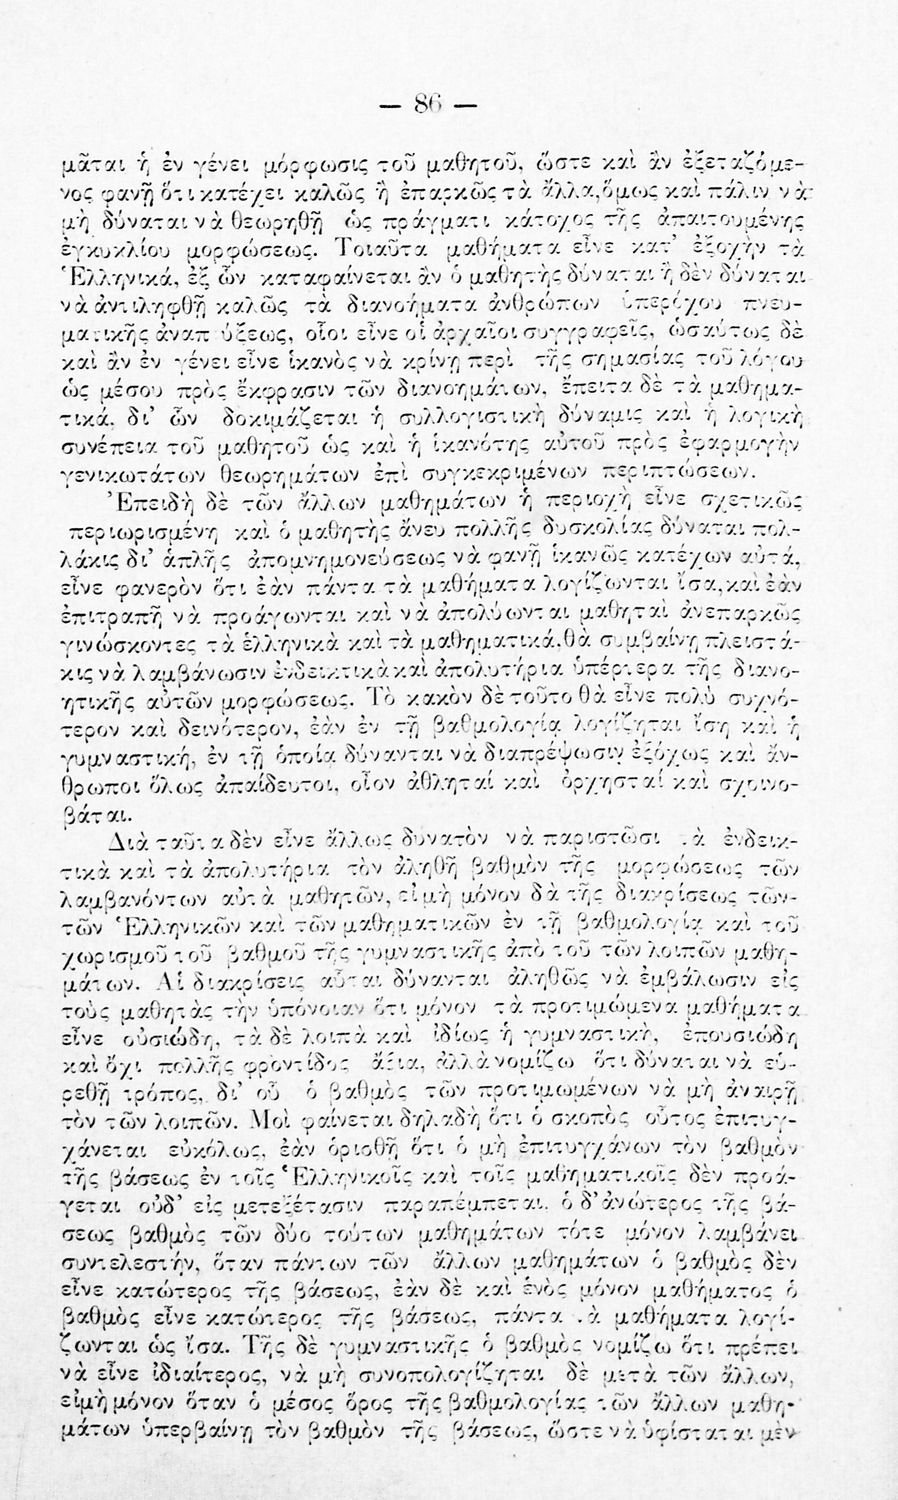 — 86 —
μᾶται ἡ ἐν γένει μόρφωσις τοῦ μαθητοῦ, ὥστε καὶ ἂν ἐξεταζόμε-
νος φανῇ ὅτι κατέχει καλῶς ἢ ἐπαρκῶς τὰ ἄλλα, ὅμως καὶ πάλιν νὰ
μὴ δύναται νὰ θεωρηθῇ ὡς πράγματι κάτοχος τῆς ἀπαιτουμένης
ἐγκυκλίου μορφώσεως. Τοιαῦτα μαθήματα εἶνε κατ’ ἐξοχὴν τὰ
Ἑλληνικά, ἐξ ὧν καταφαίνεται ἂν ὁ μαθητὴς δύναται ἢ δὲν δύναται
νὰ ἀντιληφθῇ καλῶς τὰ διανοήματα ἀνθρώπων ὑπερόχου πνευ-
ματικῆς ἀναπτύξεως, οἷοι εἶνε οἱ ἀρχαῖοι συγγραφεῖς, ὡσαύτως δὲ
καὶ ἂν ἐν γένει εἶνε ἱκανὸς νὰ κρίνῃ περὶ τῆς σημασίας τοῦ λόγου
ὡς μέσου πρὸς ἔκφρασιν τῶν διανοημάτων, ἔπειτα δὲ τὰ μαθημα-
τικά, δι’ ὧν δοκιμάζεται ἡ συλλογιστικὴ δύναμις καὶ ἡ λογικὴ
συνέπεια τοῦ μαθητοῦ ὡς καὶ ἡ ἱκανότης αὐτοῦ πρὸς ἐφαρμογὴν
γενικωτάτων θεωρημάτων ἐπὶ συγκεκριμένων περιπτώσεων.
Ἐπειδὴ δὲ τῶν ἄλλων μαθημάτων ἡ περιοχὴ εἶνε σχετικῶς
περιωρισμένη καὶ ὁ μαθητὴς ἄνευ πολλῆς δυσκολίας δύναται πολ-
λάκις δι’ ἁπλῆς ἀπομνημονεύσεως νὰ φανῇ ἱκανῶς κατέχων αὐτά,
εἶνε φανερὸν ὅτι ἐὰν πάντα τὰ μαθήματα λογίζωνται ἴσα, καὶ ἐὰν
ἐπιτραπῇ νὰ προάγωνται καὶ νὰ ἀπολύωνται μαθηταὶ ἀνεπαρκῶς
γινώσκοντες τὰ ἑλληνικὰ καὶ τὰ μαθηματικά, θὰ συμβαίνῃ πλειστά-
κις νὰ λαμβάνωσιν ἐνδεικτικὰ καὶ ἀπολυτήρια ὑπέρτερα τῆς διανο-
ητικῆς αὐτῶν μορφώσεως. Τὸ κακὸν δὲ τοῦτο θὰ εἶνε πολὺ συχνό-
τερον καὶ δεινότερον, ἐὰν ἐν τῇ βαθμολογίᾳ λογίζηται ἴση καὶ ἡ
γυμναστική, ἐν τῇ ὁποίᾳ δύνανται νὰ διαπρέψωσιν ἐξόχως καὶ ἄν-
θρωποι ὅλως ἀπαίδευτοι, οἷον ἀθληταί καὶ ὀρχησταί καὶ σχοινο-
βάται.
Διὰ ταῦτα δὲν εἶνε ἄλλως δυνατὸν νὰ παριστῶσι τὰ ἐνδεικ-
τικὰ καὶ τὰ ἀπολυτήρια τὸν ἀληθῆ βαθμὸν τῆς μορφώσεως τῶν
λαμβανόντων αὐτὰ μαθητῶν, εἰμὴ μόνον δὰ τῆς διακρίσεως τῶν-
τῶν Ἑλληνικῶν καὶ τῶν μαθηματικῶν ἐν τῇ βαθμολογίᾳ καὶ τοῦ
χωρισμοῦ τοῦ βαθμοῦ τῆς γυμναστικῆς ἀπὸ τοῦ τῶν λοιπῶν μαθη-
μάτων. Αἱ διακρίσεις αὗται δύνανται ἀληθῶς νὰ ἐμβάλωσιν εἰς
τοὺς μαθητὰς τὴν ὑπόνοιαν ὅτι μόνον τὰ προτιμώμενα μαθήματα
εἶνε οὐσιώδη, τὰ δὲ λοιπὰ καὶ ἰδίως ἡ γυμναστικὴ, ἐπουσιώδη
καὶ ὄχι πολλῆς φροντίδος ἄξια, ἀλλὰ νομίζω ὅτι δύναται νὰ εὑ-
ρεθῇ τρόπος, δι’ οὗ ὁ βαθμὸς τῶν προτιμωμένων νὰ μὴ ἀναιρῇ
τὸν τῶν λοιπῶν. Μοὶ φαίνεται δηλαδὴ ὅτι ὁ σκοπὸς οὗτος ἐπιτυγ-
χάνεται εὐκόλως, ἐὰν ὁρισθῇ ὅτι ὁ μὴ ἐπιτυγχάνων τὸν βαθμὸν
τῆς βάσεως ἐν τοῖς Ἑλληνικοῖς καὶ τοῖς μαθηματικοῖς δὲν προά-
γεται οὐδ’ εἰς μετεξέτασιν παραπέμπεται, ὁ δ’ ἀνώτερος τῆς βά-
σεως βαθμὸς τῶν δύο τούτων μαθημάτων τότε μόνον λαμβάνει
συντελεστήν, ὅταν πάντων τῶν ἄλλων μαθημάτων ὁ βαθμὸς δὲν
εἶνε κατώτερος τῆς βάσεως, ἐὰν δὲ καὶ ἑνὸς μόνον μαθήματος ὁ
βαθμὸς εἶνε κατώτερος τῆς βάσεως, πάντα τὰ μαθήματα λογί-
ζωνται ὡς ἴσα. Τῆς δὲ γυμναστικῆς ὁ βαθμὸς νομίζω ὅτι πρέπει
νὰ εἶνε ἰδιαίτερος, νὰ μὴ συνοπολογίζηται δὲ μετὰ τῶν ἄλλων,
εἰμὴ μόνον ὅταν ὁ μέσος ὅρος τῆς βαθμολογίας τῶν ἄλλων μαθη-
μάτων ὑπερβαίνῃ τὸν βαθμὸν τῆς βάσεως, ὥστε νὰ ὑφίσταται μὲν